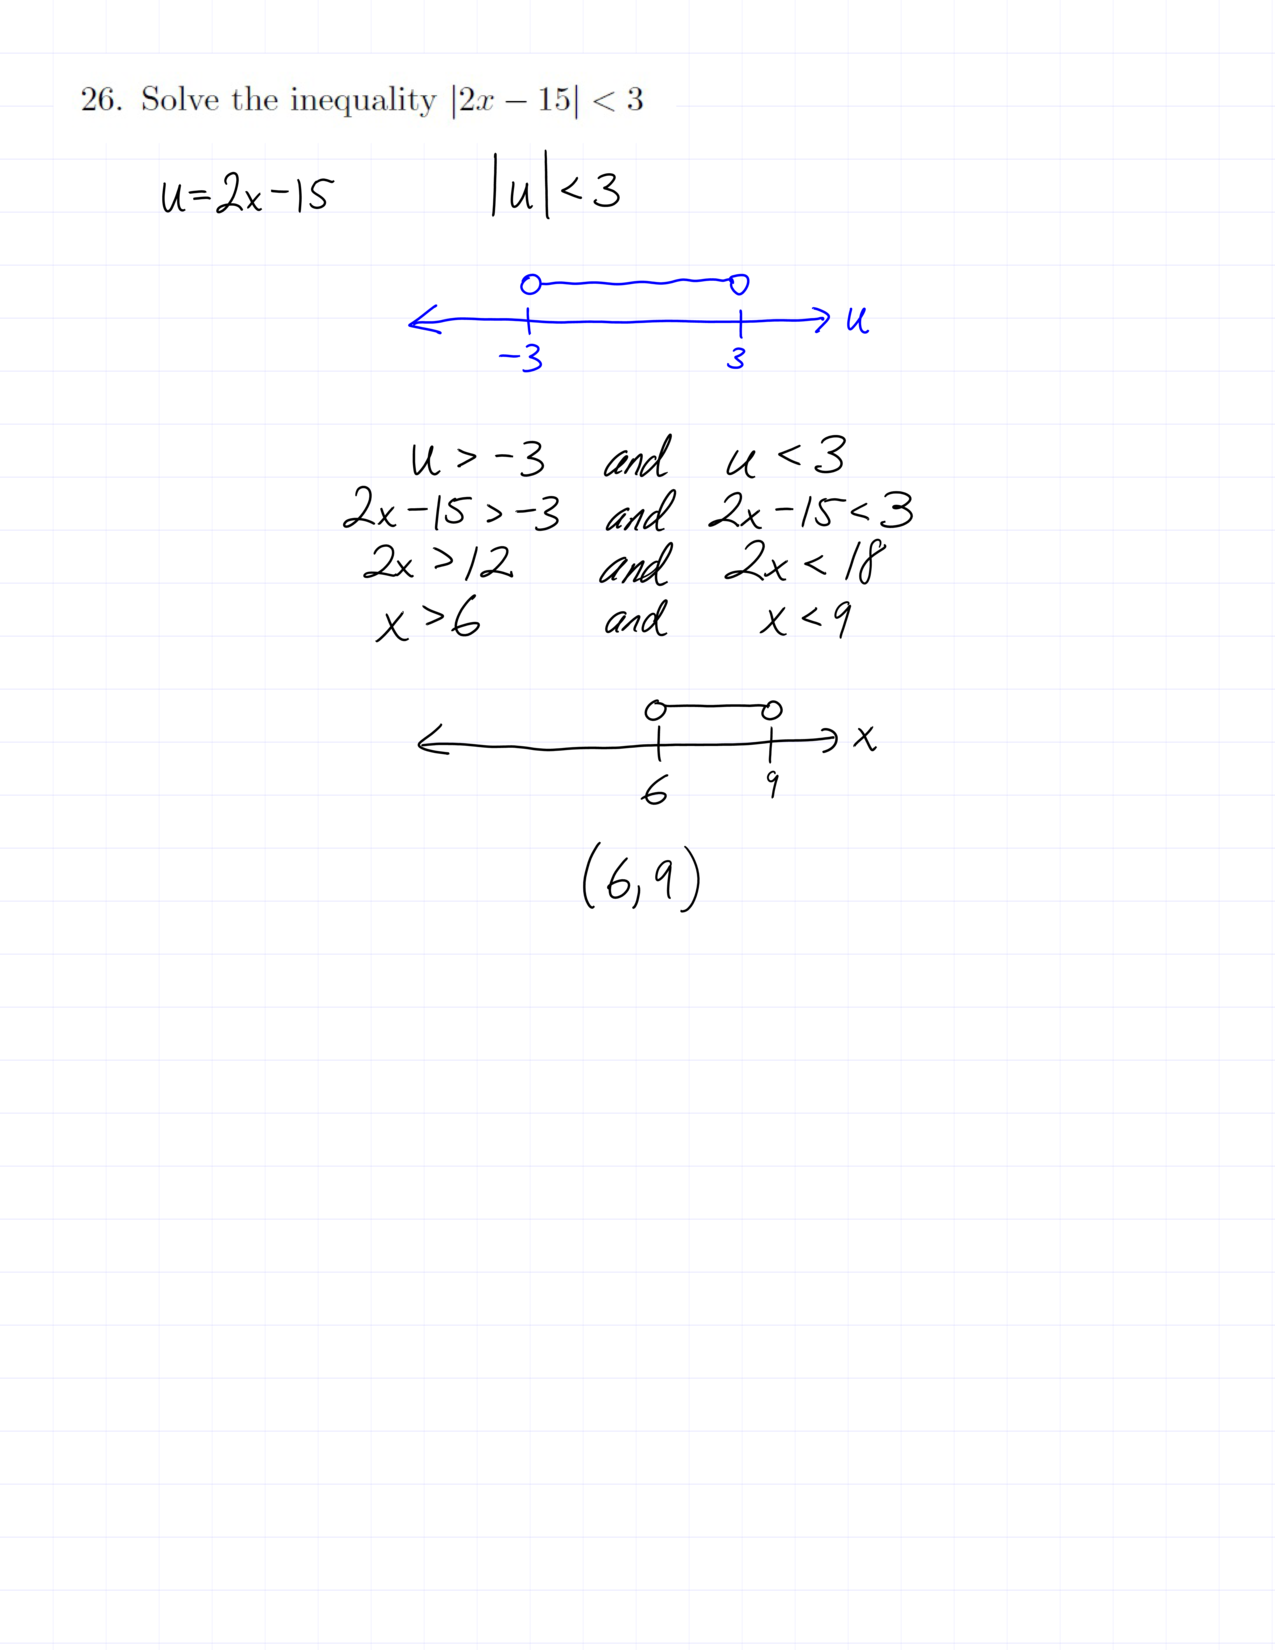 26. Solve the inequality |2x − 15| < 3
u=2x-15 |u|<3
u
-3 3
u > -3 and u < 3
2x-15 > -3 and 2x-15 < 3
2x > 12 and 2x < 18
x > 6 and x < 9
x
6 9
(6,9)